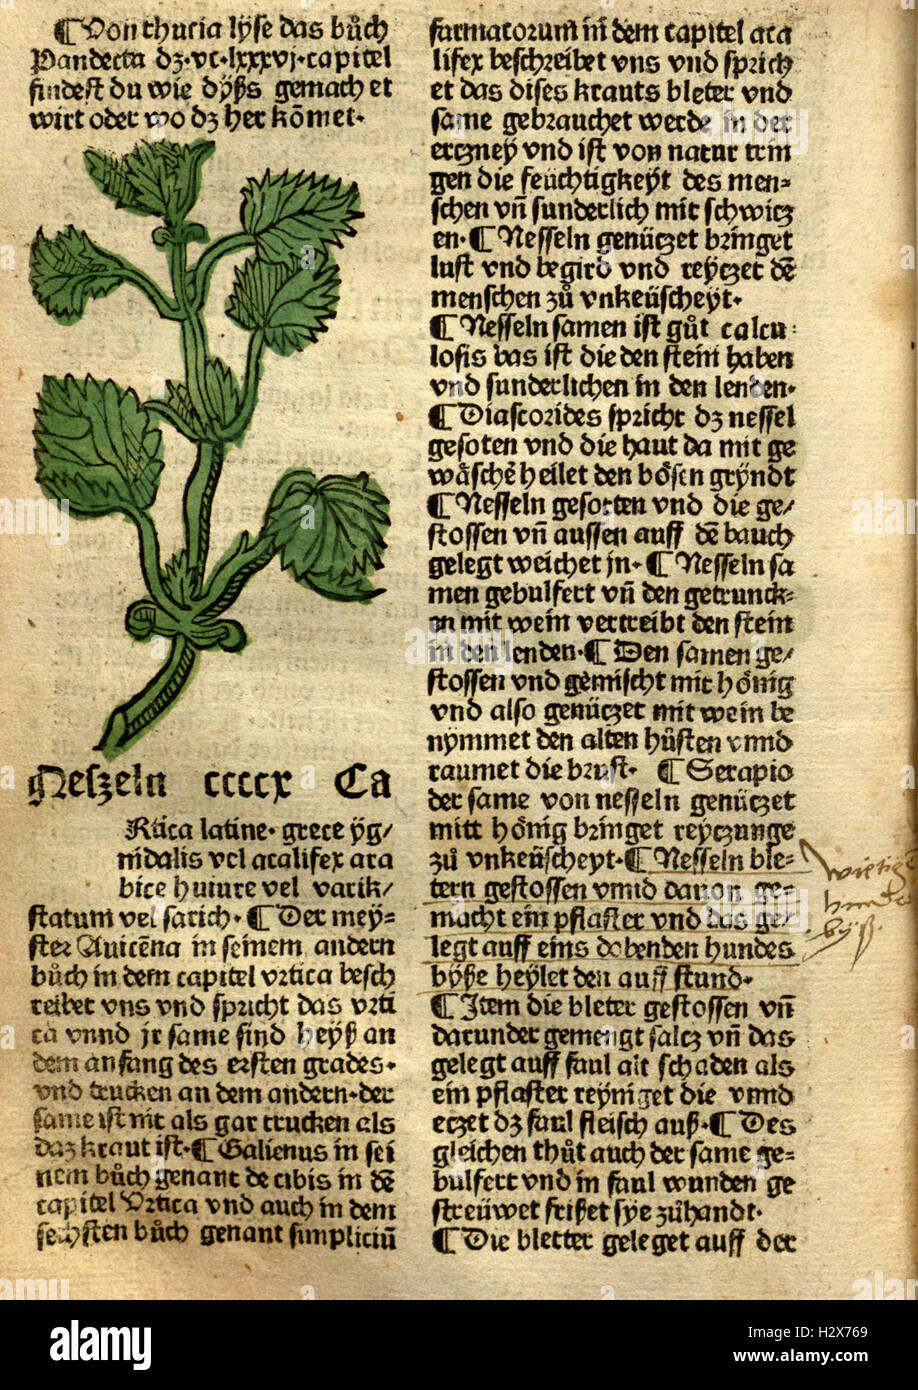 ¶Von thucia lyse das bůch
Pandecta dz·vc·lxxxvj·capitel
findest du wie dyßs gemachet
wirt oder wo dz her kōmet·
Neszeln ccccx Ca
Rtica latine· grece yg⸗
nidalis vel acalifex ara
bice huiure vel varik⸗
statum vel sarich·¶Der mey⸗
ster Auicēna in seinem andern
bůch in dem capitel vrtica besch
reibet vns vnd spricht das vrti
ca vnnd jr same sind heyß an
dem anfang des ersten grades·
vnd trucken an dem andern·der
same ist nit als gar trucken als
daz kraut ist·¶Galienus in sei
nem bůch genant de cibis in dē
capitel Vrtica vnd auch in dem
sechsten bůch genant simpliciū
farmacorum in dem capitel aca
lifex beschreibet vns vnd sprich
et das dises krauts bleter vnd
same gebrauchet werde in der
erczney vnd ist von natur trin
gen die feüchtigkeyt des men⸗
schen vn̄ sunderlich mit schwicz
en·¶Nesseln genüczet bringet
lust vnd begird vnd reyczet dē
menschen zů vnkeüscheyt·
¶Nesseln samen ist gůt calcu
losis das ist die den stein haben
vnd sunderlichen in den lenden·
¶Diascorides spricht dz nessel
gesoten vnd die haut da mit ge
wäschē heilet den bösen gryndt
¶Nesseln gesotten vnd die ge⸗
stossen vn̄ aussen auff dē bauch
gelegt weichet jn·¶Nesseln sa
men gebulfert vn̄ den getrunck⸗
en mit wein vertreibt den stein
in den lenden·¶Den samen ge⸗
stossen vnd gemischt mit hönig
vnd also genüczet mit wein be
nymmet den alten hůsten vnnd
raumet die brust· ¶Serapio
der same von nesseln genüczet
mitt hönig bringet reyczunge
zů vnkeüscheyt·¶Nesseln ble⸗
tern gestossen vnnd daran ge⸗
macht ein pflaster vnd das ge⸗
legt auff eins dobenden hundes
byße heylet den auff stund·
¶Item die bleter gestossen vn̄
darunder gemengt salcz vn̄ das
gelegt auff faul alt schaden als
ein pflaster reyniget die vnnd
eczet dz faul fleisch auß·¶Des
gleichen thůt auch der same ge⸗
bulfert vnd in faul wunden ge
streüwet frißet sye zůhandt·
¶Die bletter geleget auff der
wietig
byß.
alamy
Image ID: H2X769
www.alamy.com